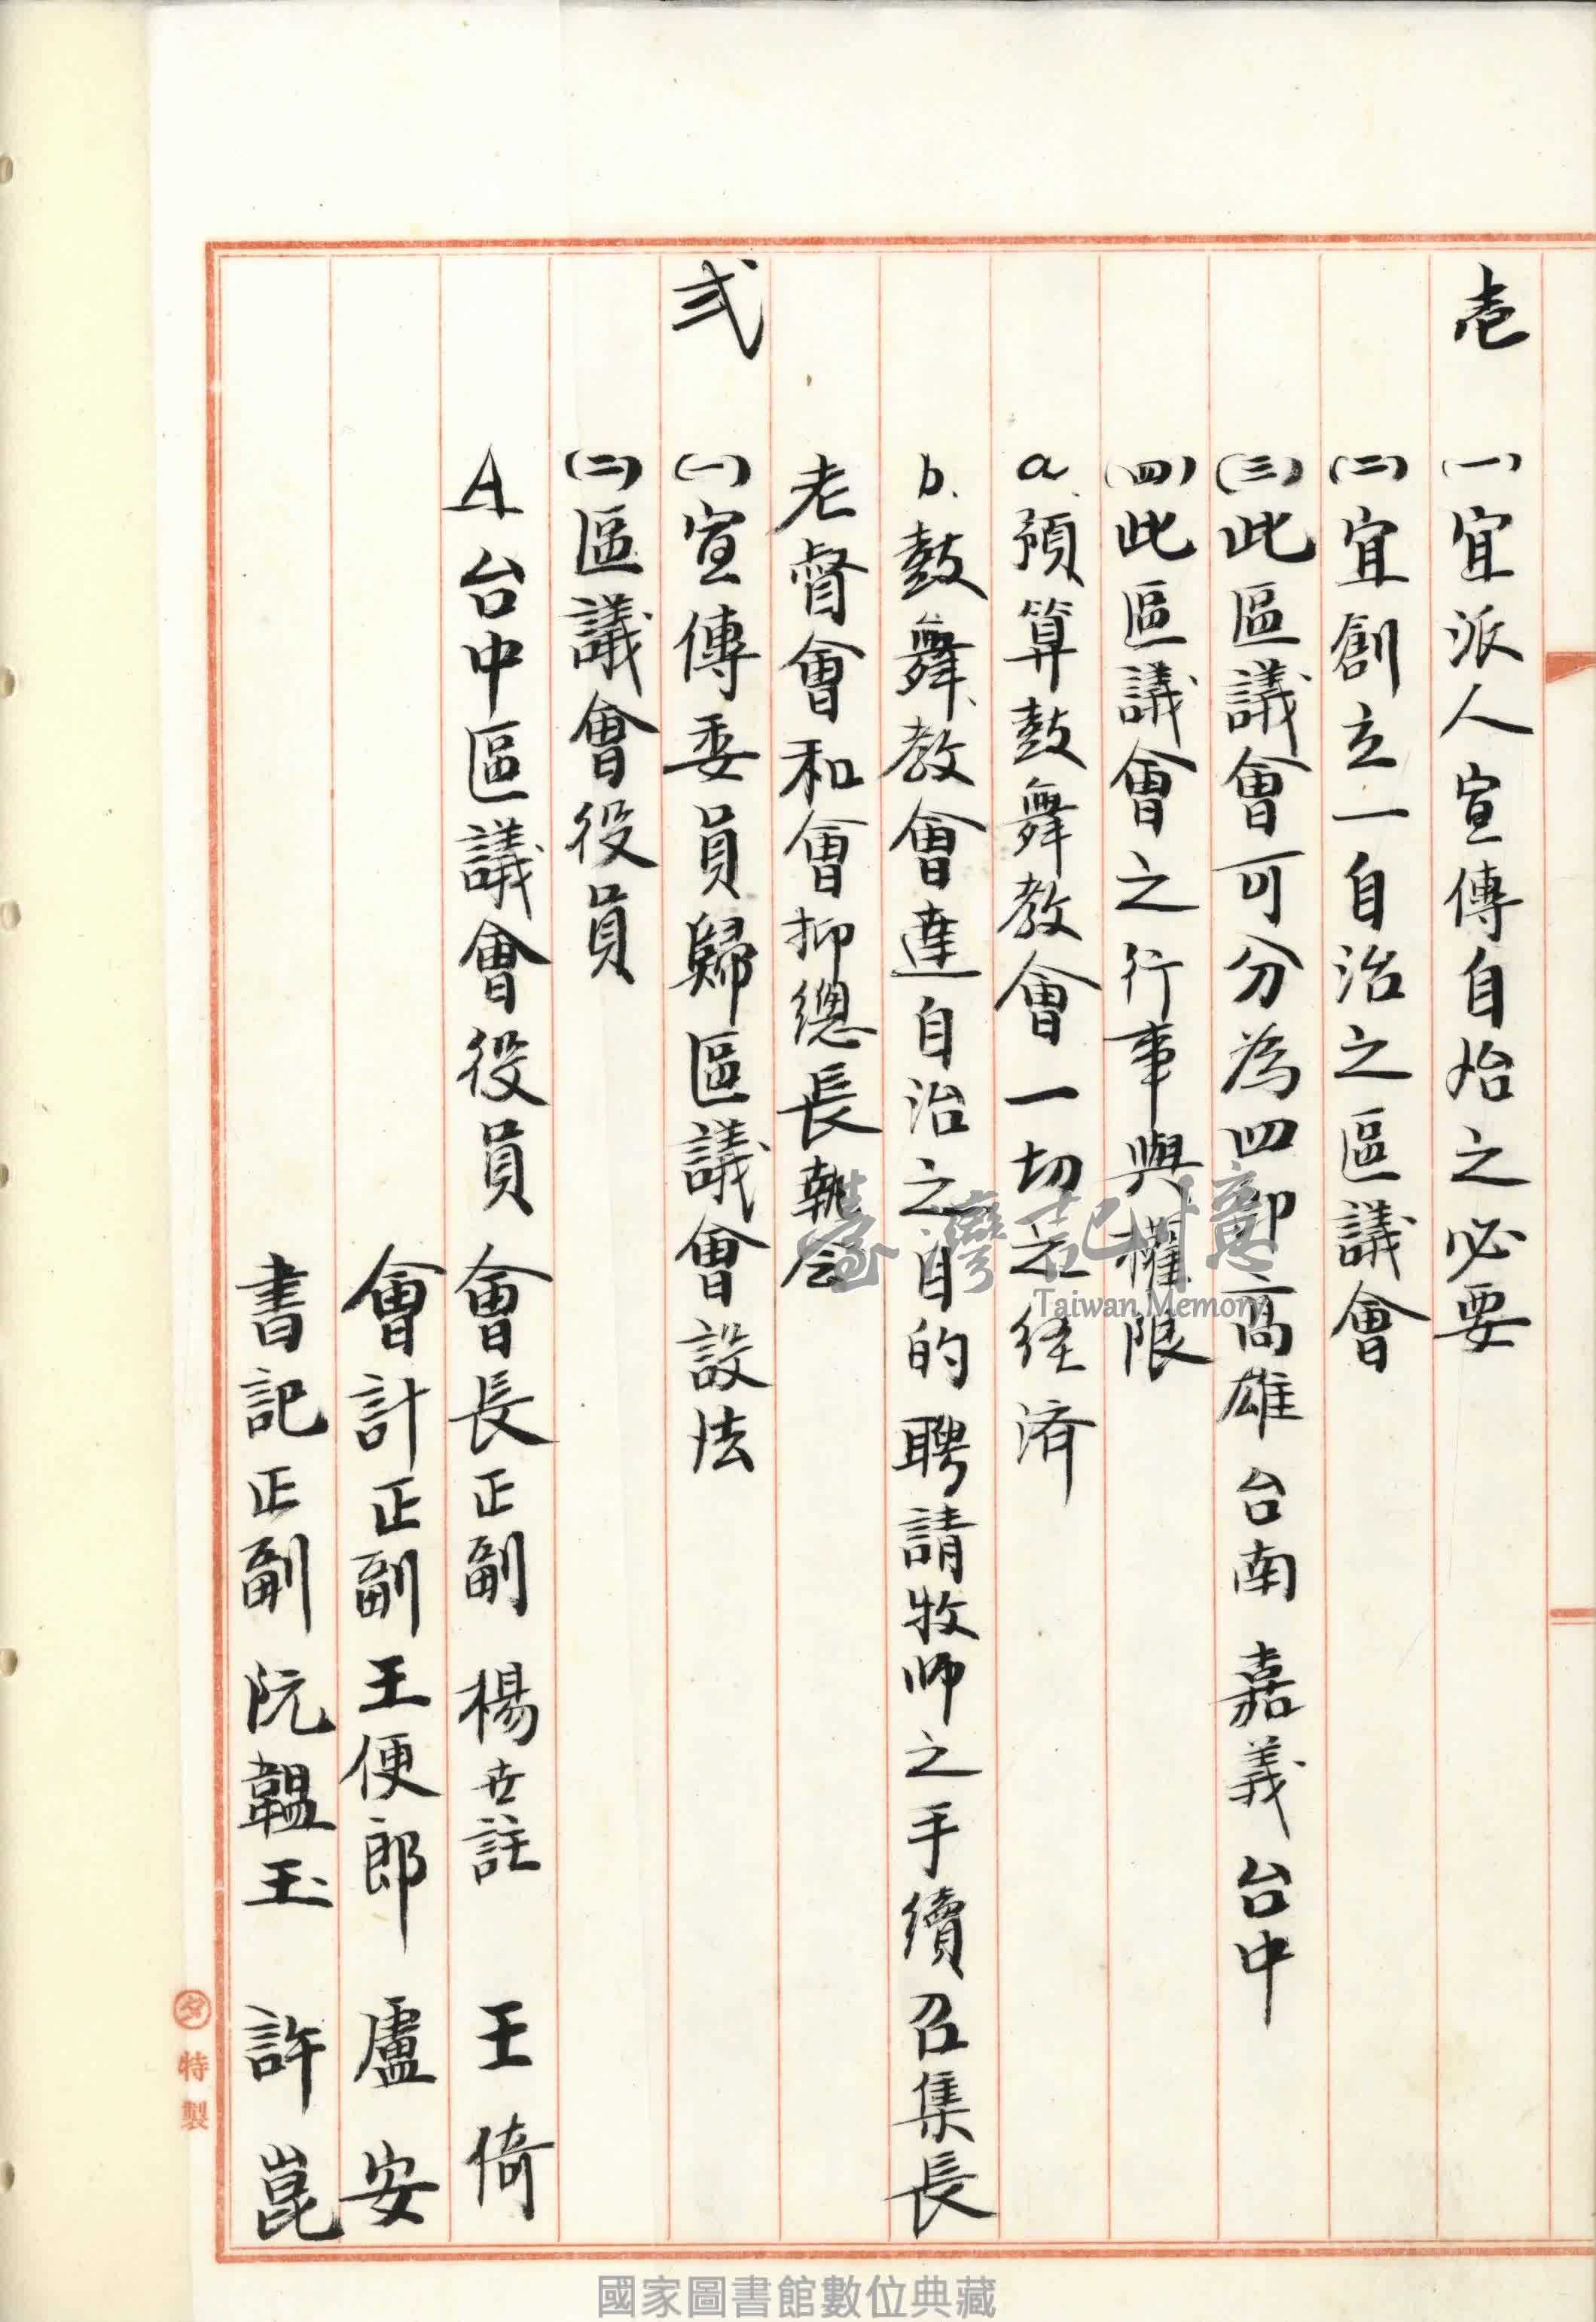 壱　(一)宜派人宣傳自治之必要
(二)宜創立一自治之區議會
(三)此區議會可分為四部高雄 台南 嘉義 台中
(四)此區議會之行事與權限
a.預算鼓舞教會一切之経済
b.鼓舞教會達自治之目的聘請牧師之手續召集長
老督會和會抑總長執会
弍　(一)宣傳委員歸區議會設法
(二)區議會役員
A 台中區議會役員 會長正副 楊世註 王倚
會計正副 王便郎 盧安
書記正副 阮韞玉 許崑
夕特製
臺灣記憶
Taiwan Memory
國家圖書館數位典藏